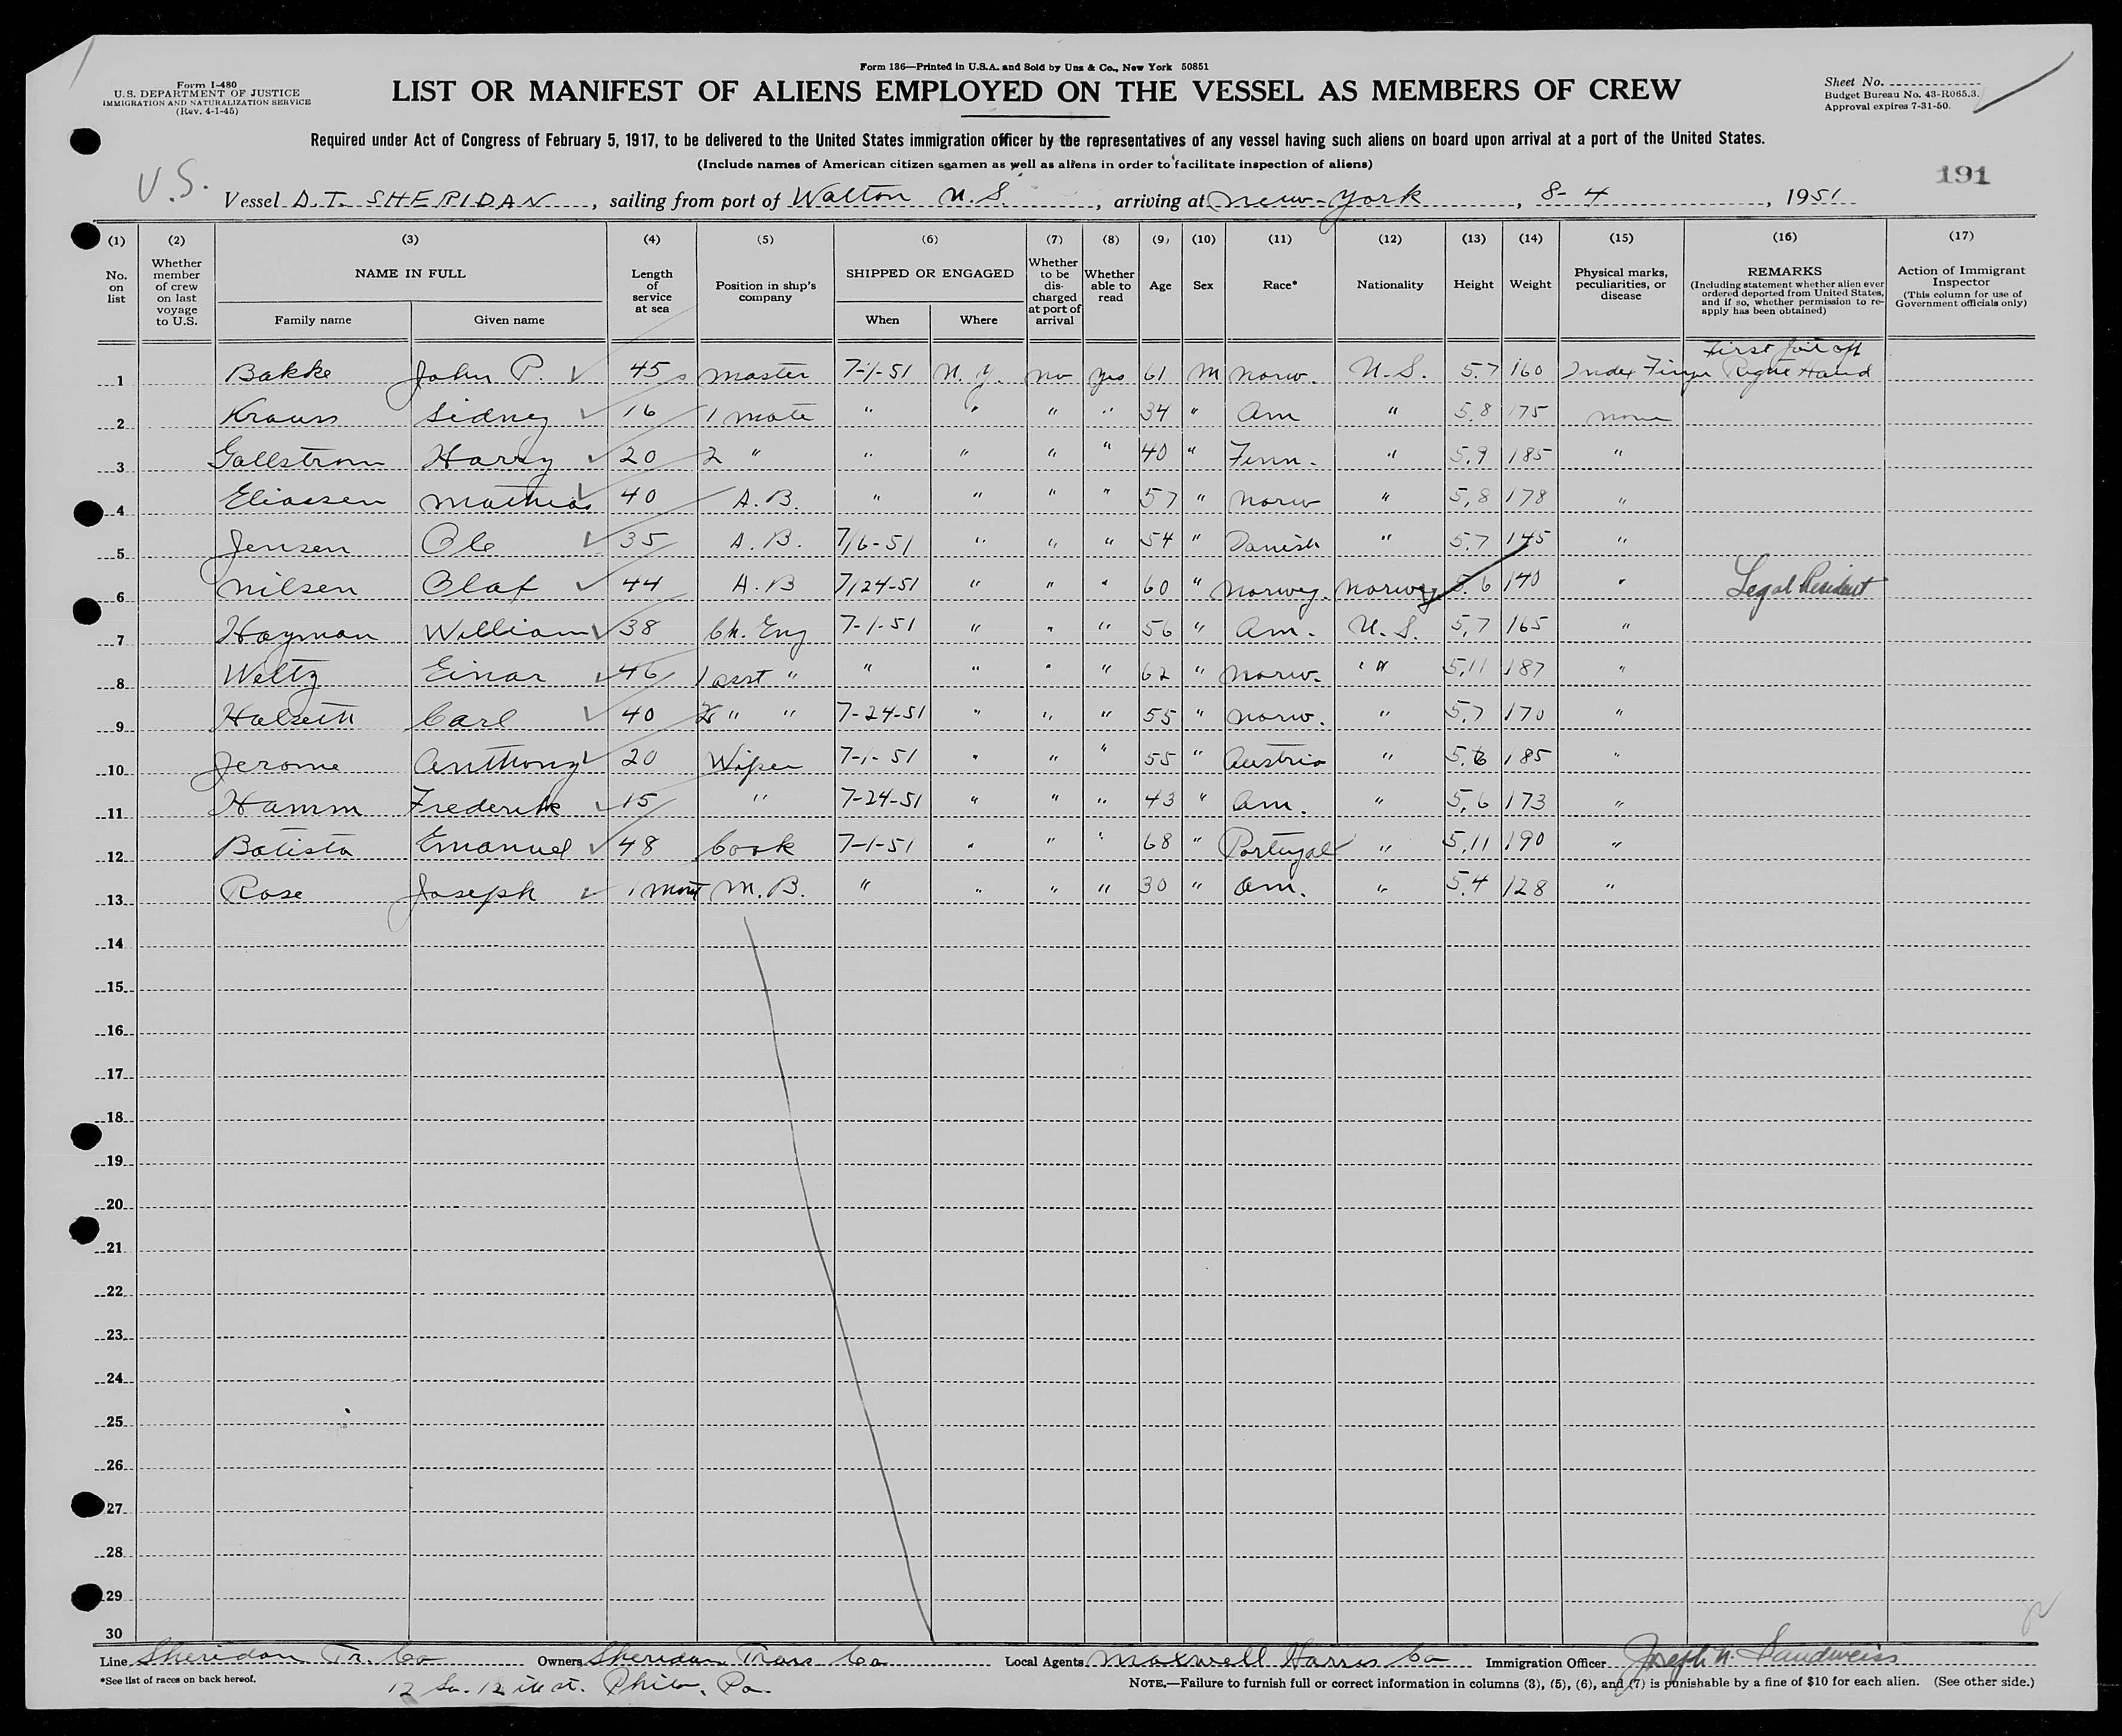 Form 136—Printed in U.S.A. and Sold by Unz & Co., New York 50851
Form I-480
U.S. DEPARTMENT OF JUSTICE
IMMIGRATION AND NATURALIZATION SERVICE
(Rev. 4-1-45)
LIST OR MANIFEST OF ALIENS EMPLOYED ON THE VESSEL AS MEMBERS OF CREW
Sheet No.
Budget Bureau No. 43-R065.3.
Approval expires 7-31-50.
Required under Act of Congress of February 5, 1917, to be delivered to the United States immigration officer by the representatives of any vessel having such aliens on board upon arrival at a port of the United States.
(Include names of American citizen seamen as well as aliens in order to facilitate inspection of aliens)
191
U.S.
Vessel D.T. SHERIDAN, sailing from port of Walton N.S., arriving at New-York, 8-4, 1951
(1) (2) (3) (4) (5) (6) (7) (8) (9) (10) (11) (12) (13) (14) (15) (16) (17)
No. on list
Whether member of crew on last voyage to U.S.
NAME IN FULL
Family name Given name
Length of service at sea
Position in ship's company
SHIPPED OR ENGAGED
When Where
Whether to be discharged at port of arrival
Whether able to read
Age
Sex
Race*
Nationality
Height
Weight
Physical marks, peculiarities, or disease
REMARKS
(Including statement whether alien ever ordered deported from United States, and if so, whether permission to reapply has been obtained)
Action of Immigrant Inspector
(This column for use of Government officials only)
First Joint off
1 Bakke John P. 45 master 7-1-51 N.Y. no yes 61 M Norw. U.S. 5.7 160 Index Finger Right Hand
2 Krauss Sidney 16 1 mate " " " " 34 " Am " 5.8 175 none
3 Gallstrom Harry 20 2 " " " " " 40 " Finn. " 5.9 185 "
4 Eliassen Mathias 40 A.B. " " " " 57 " Norw " 5,8 178 "
5 Jensen Ole 35 A.B. 7/6-51 " " " 54 " Danish " 5.7 145 "
6 Nilsen Olaf 44 A.B 7/24-51 " " " 60 " Norweg. Norweg 5.6 140 " Legal Resident
7 Hayman William 38 Ch. Eng 7-1-51 " " " 56 " Am. U.S. 5,7 165 "
8 Weltz Einar 46 1 asst " " " " " 62 " Norw. " " 5,11 187 "
9 Halseth Carl 40 " " 7-24-51 " " " 55 " Norw. " 5.7 170 "
10 Jerome Anthony 20 Wiper 7-1-51 " " " 55 " Austria " 5.6 185 "
11 Hamm Frederik 15 " 7-24-51 " " " 43 " Am. " 5,6 173 "
12 Batista Emanuel 48 Cook 7-1-51 " " " 68 " Portugal " 5,11 190 "
13 Rose Joseph 1 mont M.B. " " " " 30 " Am. " 5.4 128 "
14
15
16
17
18
19
20
21
22
23
24
25
26
27
28
29
30
Line Sheridan Tr. Co Owners Sheridan Trans Co Local Agents Maxwell Harris Co Immigration Officer Joseph N. Sandweiss
*See list of races on back hereof.
12 So. 12 th st. Phila, Pa.
NOTE.—Failure to furnish full or correct information in columns (3), (5), (6), and (7) is punishable by a fine of $10 for each alien. (See other side.)